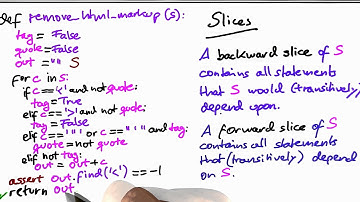 def remove_html_markup(s):
tag = False
quote = False
out = "" S
for c in s:
if c == '<' and not quote:
tag = True
elif c == '>' and not quote:
tag = False
elif c == '"' or c == "'" and tag:
quote = not quote
elif not tag:
out = out + c
assert out.find('<') == -1
return out
Slices
A backward slice of S
contains all statements
that S would (transitively)
depend upon.
A forward slice of S
contains all statements
that (transitively) depend
on S.